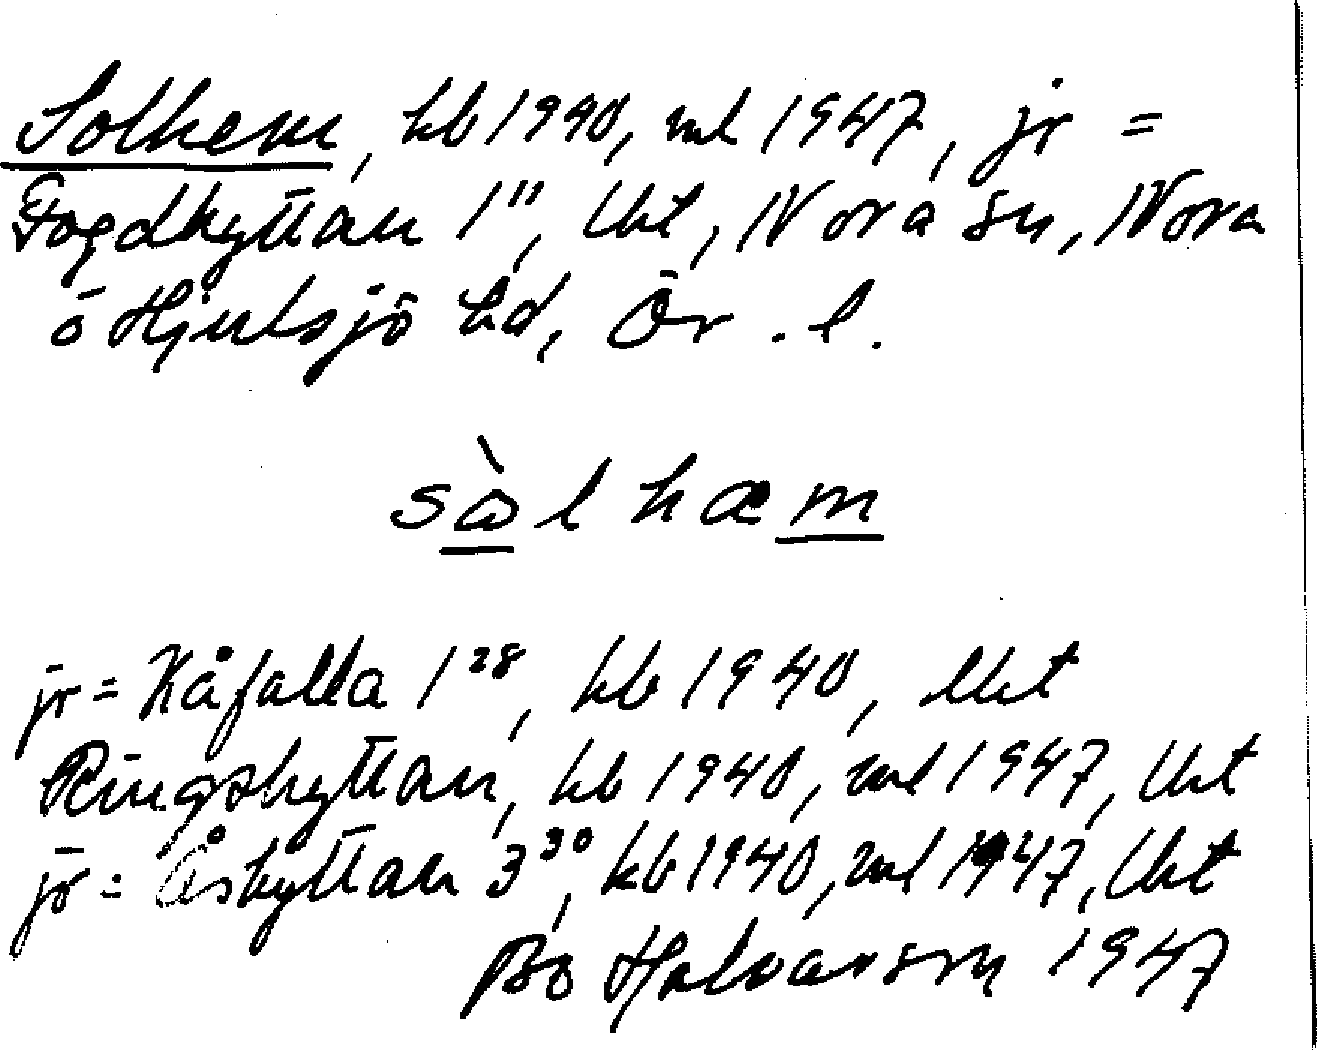 Solhem, kb 1940, ml 1947, jr =
Fogdhyttan 1¹¹, lht, Nora sn, Nora
o Hjulsjö hd, Ör. l.
sàlhæm
jr = Kåfalla 1²⁸, kb 1940, lht
Ringshyttan, kb 1940, ml 1947, lht
jr = Åshyttan 3³⁰, kb 1940, ml 1947, lht
Bo Halvarson 1947